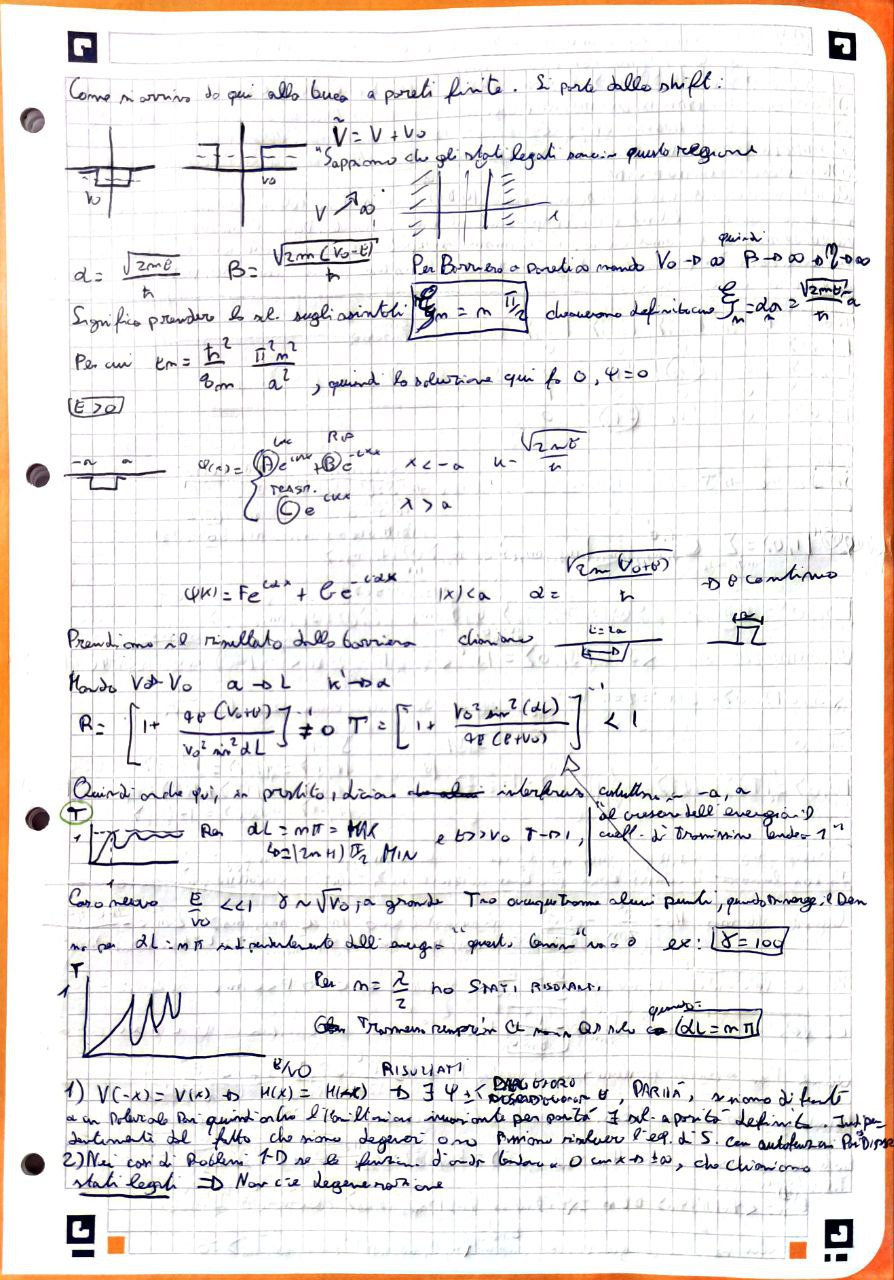 Come si arriva da qui alla buca a pareti finite. Si parte dallo shift:
Ṽ = V + V₀
"Sappiamo che gli stati legati sono in questa regione
V₀
V₀
V ↗ ∞
x
α = √(2mE)/ħ β = √(2m(V₀-E))/ħ Per Barriera a pareti ∞ mando V₀ → ∞ quindi β → ∞ → η → ∞
Significa prendere le sol. sugli asintoti ξₙ = n π/2 che avevamo definito come ξₙ = αa = √(2mE)/ħ a
Per cui Eₙ = ħ²/8m π²n²/a² , quindi la soluzione qui fa 0, Ψ=0
E>0
inc Rif
-a a φ(x) = { A e^{ikx} + B e^{-ikx} x < -a k = √(2mE)/ħ
trasm.
C e^{ikx} x > a
φ(x) = F e^{iαx} + G e^{-iαx} |x| < a α = √(2m(V₀+E))/ħ → E continuo
Prendiamo il risultato della barriera chiamiamo L=2a
Mando V → V₀ a → L k' → α
R = [1 + 4E(V₀+E)/V₀² sin² αL]⁻¹ ≠ 0 T = [1 + V₀² sin²(αL)/4E(E+V₀)]⁻¹ < 1
Quindi anche qui, in -a, a
T
1 Per αL = nπ = MAX e E>>V₀ T → 1, "al crescere dell'energia il
= (2n+1) π/2 MIN coeff. di trasmissione tende a 1"
Caso E/V₀ <<1 γ ~ √V₀, a grande T ovunque tranne alcuni punti, quando il Den
per αL = nπ indipendentemente dall'energia "questo termine" va a 0 ex: γ = 100
T
1 Per n = λ/2 ho STATI RISONANTI.
quando: αL = nπ
E/V₀
RISULTATI
1) V(-x) = V(x) ⇒ H(x) = H(-x) ⇒ ∃ Ψ± , PARITÀ, siamo di fronte
a un Potenziale Pari quindi anche l'Hamiltoniana invariante per parità ∃ sol. a parità definita. Indipe-
dentemente dal fatto che siano degeneri o no Possiamo risolvere l'eq. di S. con autofunzioni Pari Dispari
2) Nei casi di Problemi 1-D se le funzioni d'onda tendono a 0 con x → ±∞, che chiamiamo
stati legati ⇒ Non c'è degenerazione